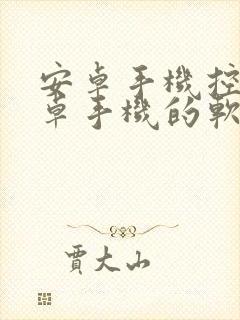 安卓手機控
卓手機的軟
賈大山